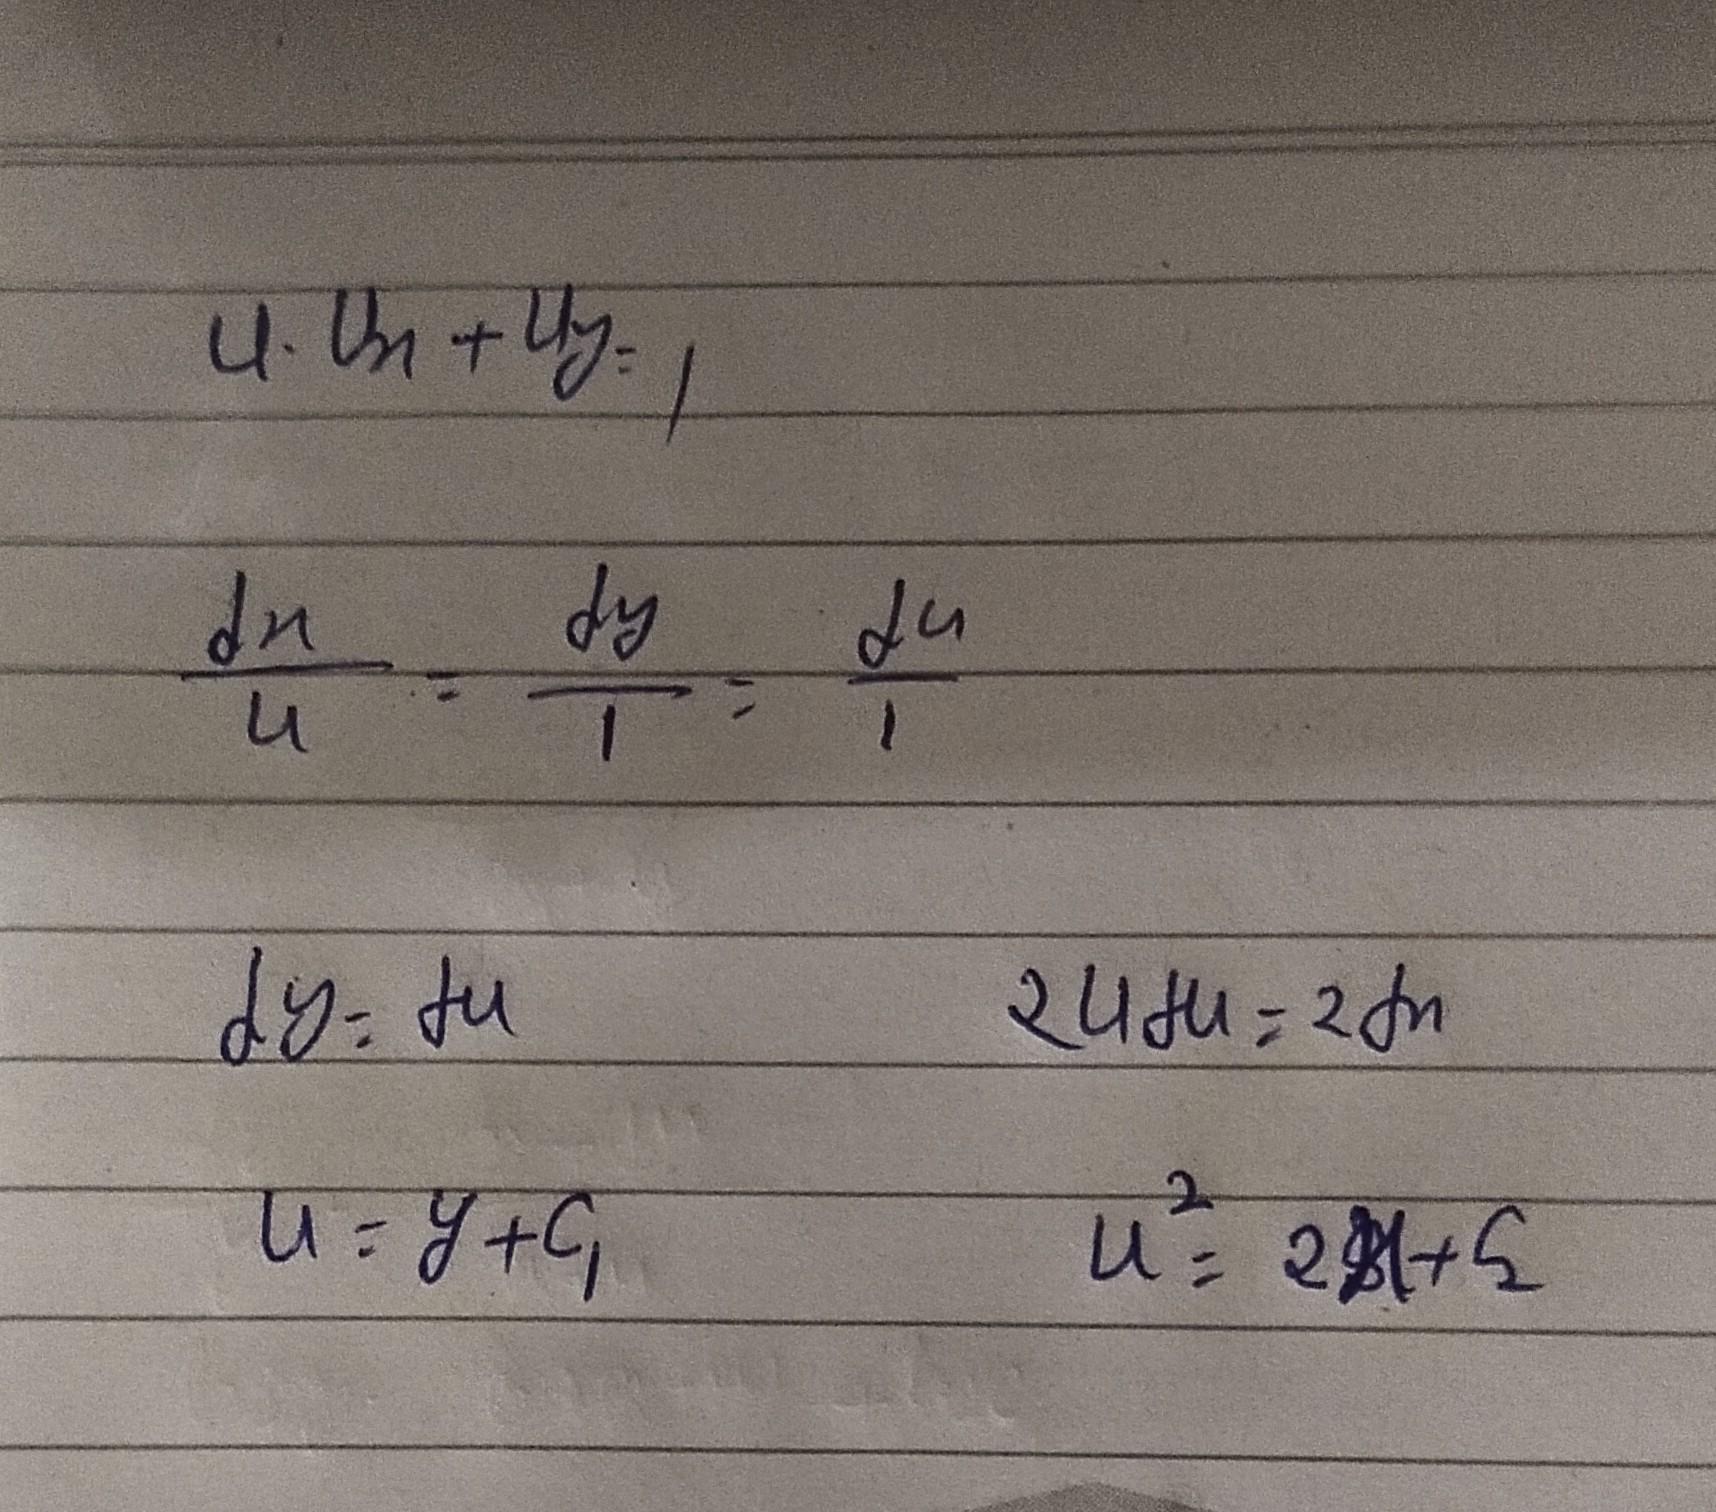 u. ux + uy = 1
dx/u = dy/1 = du/1
dy = du 2udu = 2dx
u = y + C₁ u² = 2x + C₂